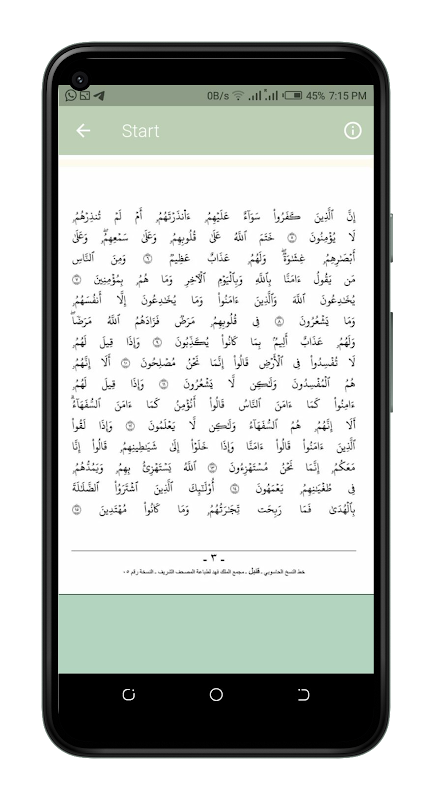 0B/s 45% 7:15 PM
Start
إِنَّ ٱلَّذِينَ كَفَرُواْ سَوَآءٌ عَلَيْهِمُۥ ءَا۬نذَرْتَهُمُۥ أَمْ لَمْ تُنذِرْهُمُۥ
لَا يُؤْمِنُونَ ٥ خَتَمَ ٱللَّهُ عَلَىٰ قُلُوبِهِمُۥ وَعَلَىٰ سَمْعِهِمُۥۖ وَعَلَىٰ
أَبْصَٰرِهِمُۥ غِشَٰوَةٌۖ وَلَهُمُۥ عَذَابٌ عَظِيمٌ ٦ وَمِنَ ٱلنَّاسِ
مَن يَقُولُ ءَامَنَّا بِٱللَّهِ وَبِٱلْيَوْمِ ٱلْأٓخِرِ وَمَا هُمُۥ بِمُؤْمِنِينَ ٧
يُخَٰدِعُونَ ٱللَّهَ وَٱلَّذِينَ ءَامَنُواْ وَمَا يُخَٰدِعُونَ إِلَّا أَنفُسَهُمُۥ
وَمَا يَشْعُرُونَ ٨ فِي قُلُوبِهِمُۥ مَرَضٌ فَزَادَهُمُۥ ٱللَّهُ مَرَضًاۖ
وَلَهُمُۥ عَذَابٌ أَلِيمٌ بِمَا كَانُواْ يُكَذِّبُونَ ٩ وَإِذَا قِيلَ لَهُمُۥ
لَا تُفْسِدُواْ فِي ٱلْأَرْضِ قَالُواْ إِنَّمَا نَحْنُ مُصْلِحُونَ ١٠ أَلَا إِنَّهُمُۥ
هُمُ ٱلْمُفْسِدُونَ وَلَٰكِن لَّا يَشْعُرُونَ ١١ وَإِذَا قِيلَ لَهُمُۥ
ءَامِنُواْ كَمَا ءَامَنَ ٱلنَّاسُ قَالُواْ أَنُؤْمِنُ كَمَا ءَامَنَ ٱلسُّفَهَآءُۗ
أَلَا إِنَّهُمُۥ هُمُ ٱلسُّفَهَآءُ وَلَٰكِن لَّا يَعْلَمُونَ ١٢ وَإِذَا لَقُواْ
ٱلَّذِينَ ءَامَنُواْ قَالُواْ ءَامَنَّا وَإِذَا خَلَوْاْ إِلَىٰ شَيَٰطِينِهِمُۥ قَالُواْ إِنَّا
مَعَكُمُۥ إِنَّمَا نَحْنُ مُسْتَهْزِءُونَ ١٣ ٱللَّهُ يَسْتَهْزِئُ بِهِمُۥ وَيَمُدُّهُمُۥ
فِي طُغْيَٰنِهِمُۥ يَعْمَهُونَ ١٤ أُوْلَٰٓئِكَ ٱلَّذِينَ ٱشْتَرَوُاْ ٱلضَّلَٰلَةَ
بِٱلْهُدَىٰ فَمَا رَبِحَت تِّجَٰرَتُهُمُۥ وَمَا كَانُواْ مُهْتَدِينَ ١٥
- ٣ -
خط النسخ الحاسوبي ـ قنبل ـ مجمع الملك فهد لطباعة المصحف الشريف ـ النسخة رقم ٠٥